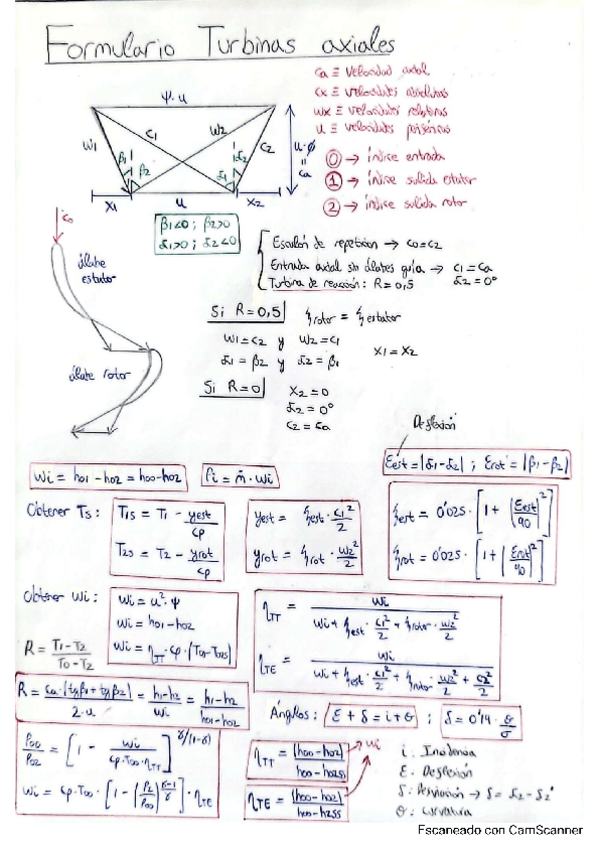 Formulario Turbinas axiales
ca ≡ velocidad axial
cx ≡ velocidades absolutas
wx ≡ velocidades relativas
u ≡ velocidades periféricas
⓪ → índice entrada
① → índice salida estator
② → índice salida rotor
ψ·u
w1 c1 w2 c2
β1 β2 α1 α2
u·ϕ = ca
x1 u x2
β1<0 ; β2>0
α1>0 ; α2<0
c0
álabe estator
álabe rotor
Escalón de repetición → c0=c2
Entrada axial sin álabes guía → c1=ca
Turbina de reacción: R=0,5 α2=0°
Si R=0,5 ξrotor = ξestator
w1=c2 y w2=c1
α1=β2 y α2=β1
x1=x2
Si R=0
x2=0
α2=0°
c2=ca
Deflexión
wi = h01-h02 = h00-h02
Pi = ṁ·wi
Eest=|α1-α2| ; Erot=|β1-β2|
Obtener Ts:
T1s = T1 - yest/cp
T2s = T2 - yrot/cp
yest = ξest·c1²/2
yrot = ξrot·w2²/2
ξest = 0'025·[1+(Eest/90)²]
ξrot = 0'025·[1+(Erot/90)²]
Obtener wi:
wi = u²·ψ
wi = h01-h02
wi = ηTT·cp·(T01-T02s)
R = (T1-T2)/(T0-T2)
ηTT = wi/(wi+ξest·c1²/2+ξrotor·w2²/2)
ηTE = wi/(wi+ξest·c1²/2+ξrotor·w2²/2+c2²/2)
R = ca·(tgβ1+tgβ2)/(2·u) = (h1-h2)/wi = (h1-h2)/(h01-h02)
Ángulos: E+δ=i+θ ; δ=0'19·θ/σ
P00/P02 = [1 - wi/(cp·T00·ηTT)]^(γ/(1-γ))
wi = cp·T00·[1-(P2/P00)^((γ-1)/γ)]·ηTE
ηTT = (h00-h02)/(h00-h02ss) → wi
ηTE = (h00-h02)/(h00-h2ss)
i: Incidencia
E: Deflexión
δ: Desviación → δ=α2-α2'
θ: curvatura
Escaneado con CamScanner